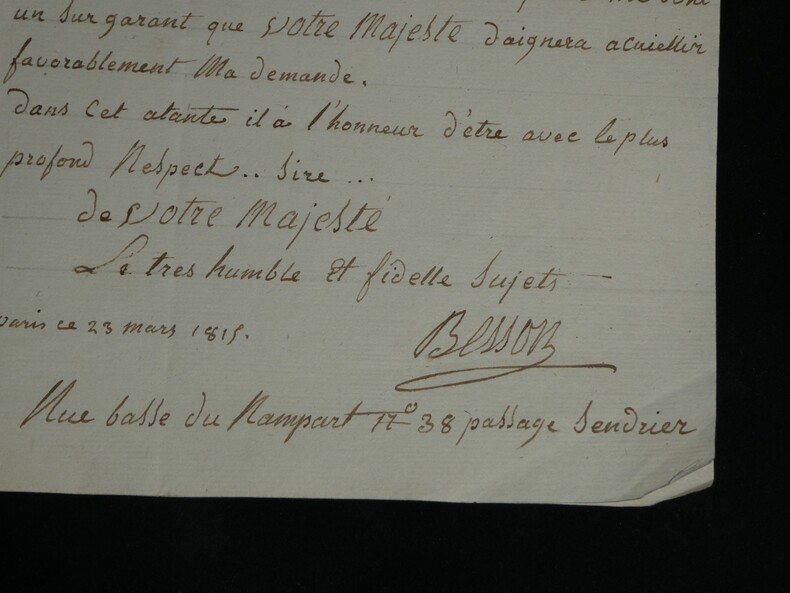 un sur garant que Votre Majesté daignera acuiellir
favorablement Ma demande.
dans Cet atante il à l'honneur d'être avec le plus
profond Respect.. Sire ...
de Votre Majesté
Le tres humble et fidelle Sujets
paris ce 23 mars 1815.
Besson
Rue basse du Rampart N° 38 passage Sendrier